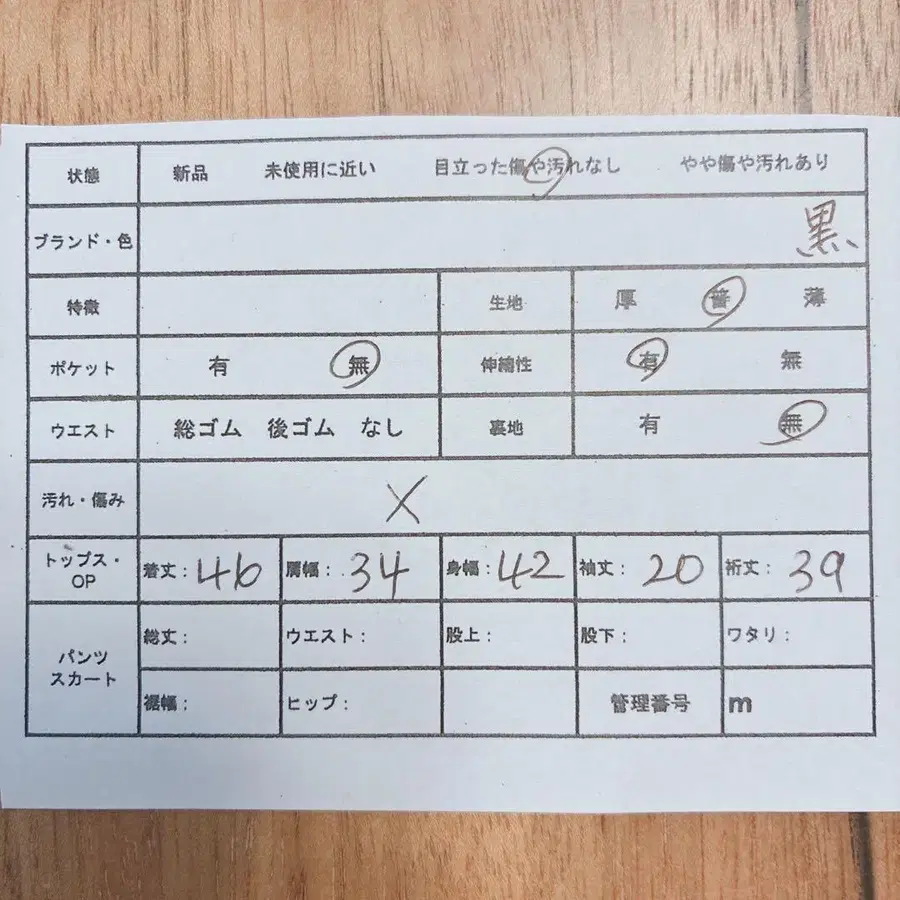 状態 新品 未使用に近い 目立った傷や汚れなし やや傷や汚れあり
ブランド・色 黒
特徴 生地 厚 普 薄
ポケット 有 無 伸縮性 有 無
ウエスト 総ゴム 後ゴム なし 裏地 有 無
汚れ・傷み X
トップス・OP 着丈: 46 肩幅: 34 身幅: 42 袖丈: 20 裄丈: 39
パンツ スカート 総丈: ウエスト: 股上: 股下: ワタリ:
裾幅: ヒップ: 管理番号 m